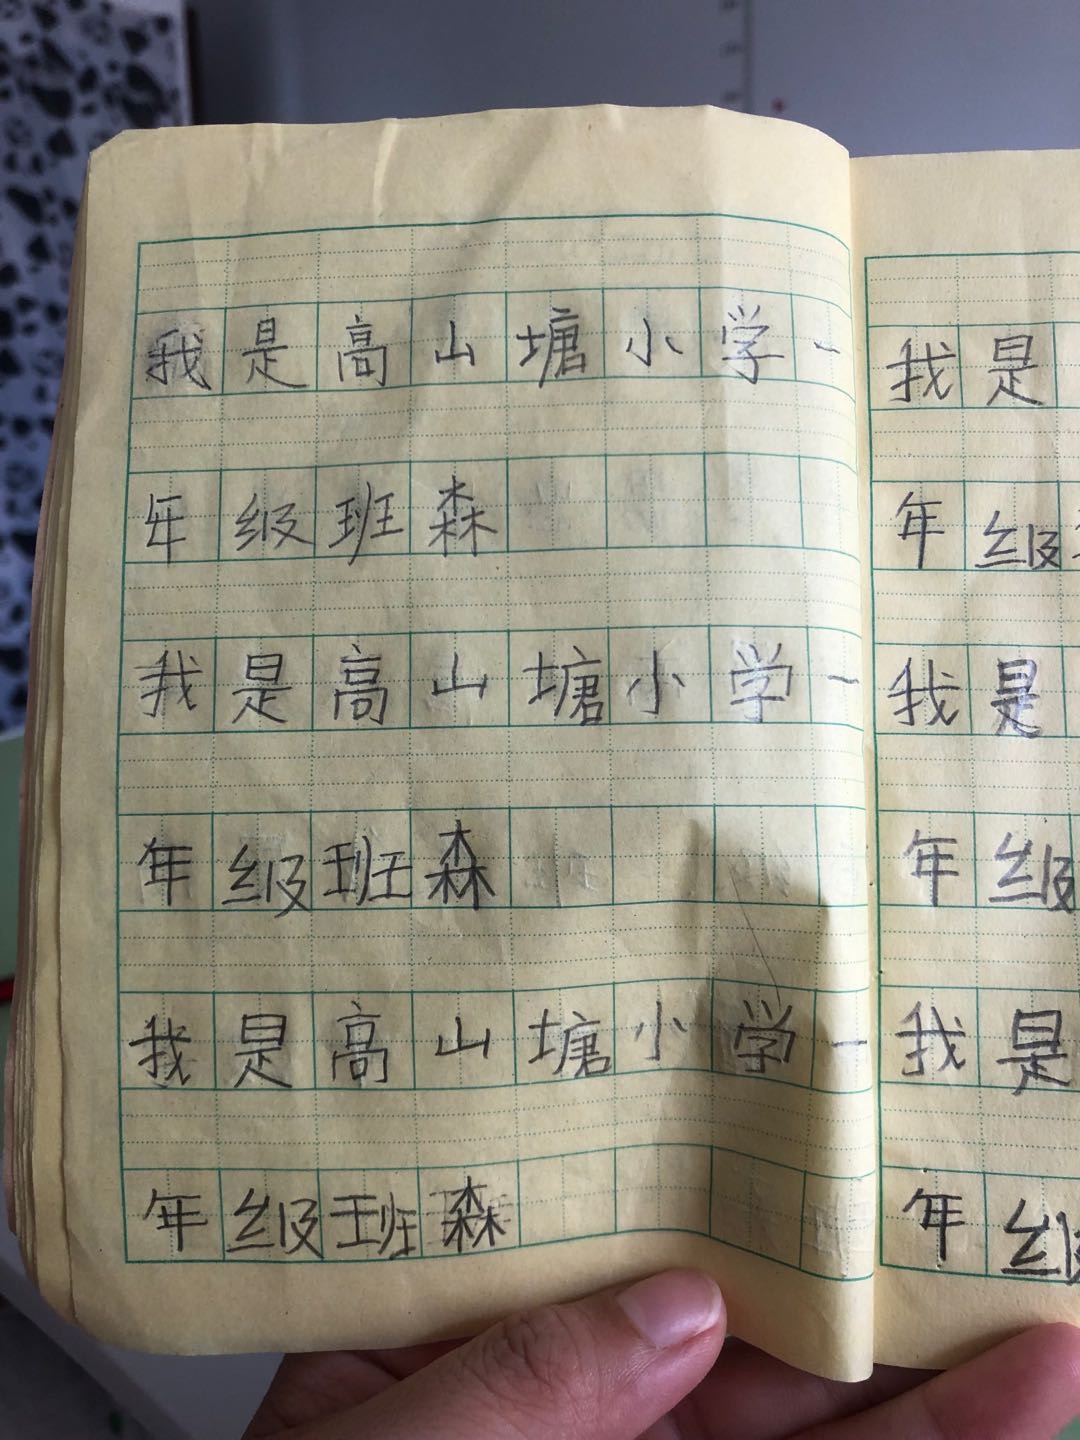 我是高山塘小学一
年级班森
我是高山塘小学一
年级班森
我是高山塘小学一
年级班森
我是
年级
我是
年级
我是
年级